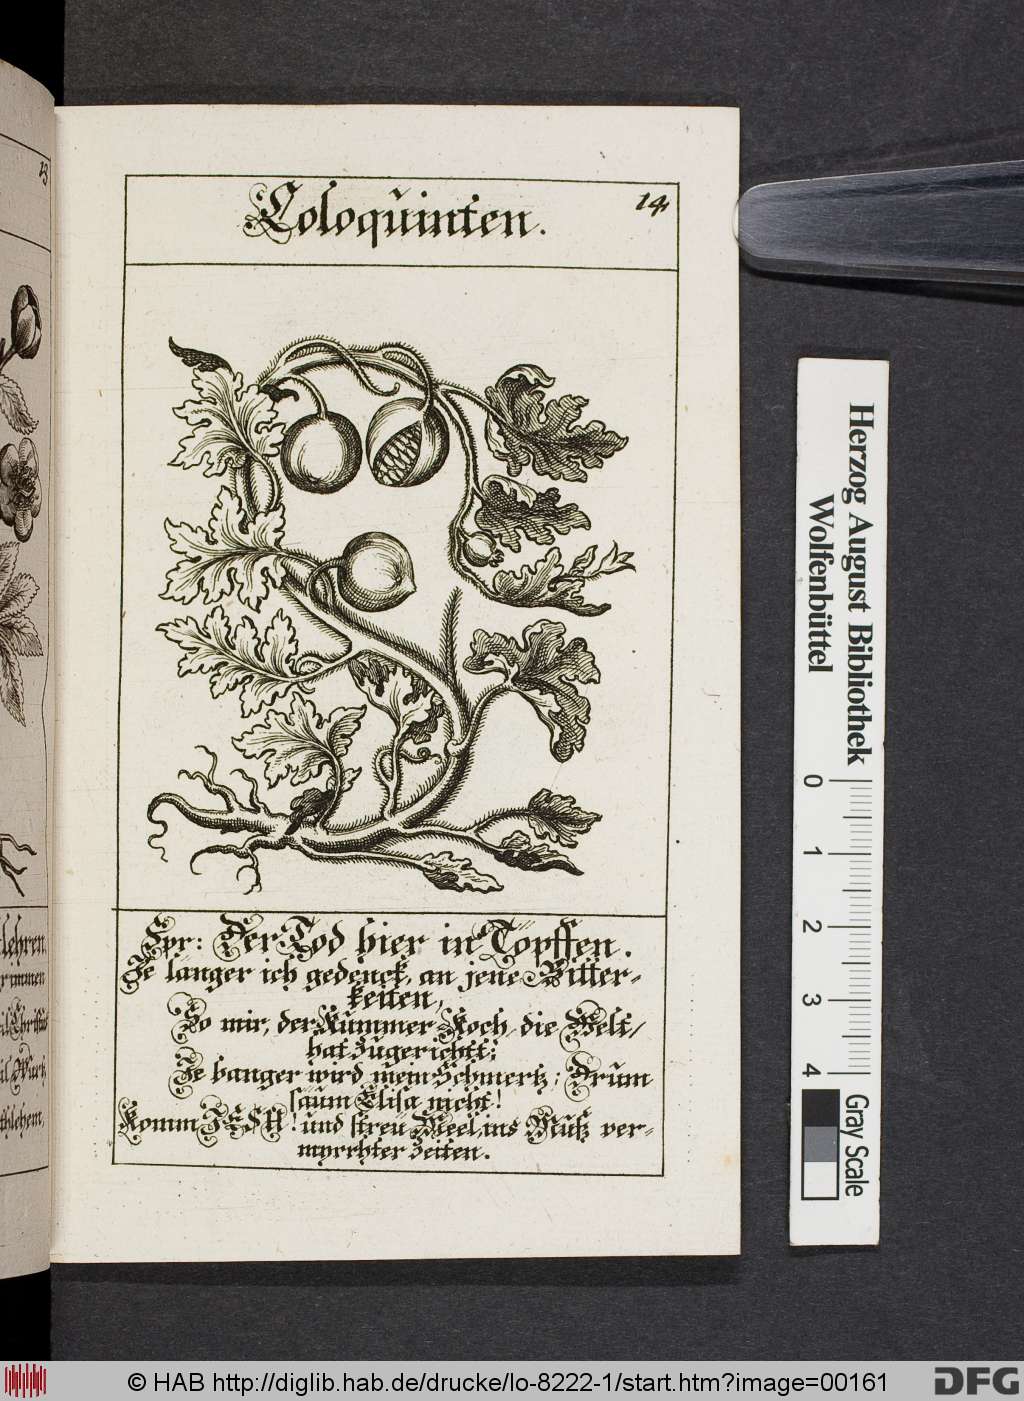 Coloquinten.
14
Spr: Der Tod hier in Töpffen.
Je länger ich gedenck, an jene Bitter-
keiten,
So mir, der Kummer-Koch, die Welt/
hat zugerichtt;
Je banger wird mein Schmertz; Drum
säum Elisa nicht!
Komm JESU! und streu Meel, ins Muß ver-
myrrhter Zeiten.
13
lehren,
rimmen
Wurtz
thlehem,
Herzog August Bibliothek
Wolfenbüttel
0 1 2 3 4
Gray Scale
© HAB http://diglib.hab.de/drucke/lo-8222-1/start.htm?image=00161
DFG